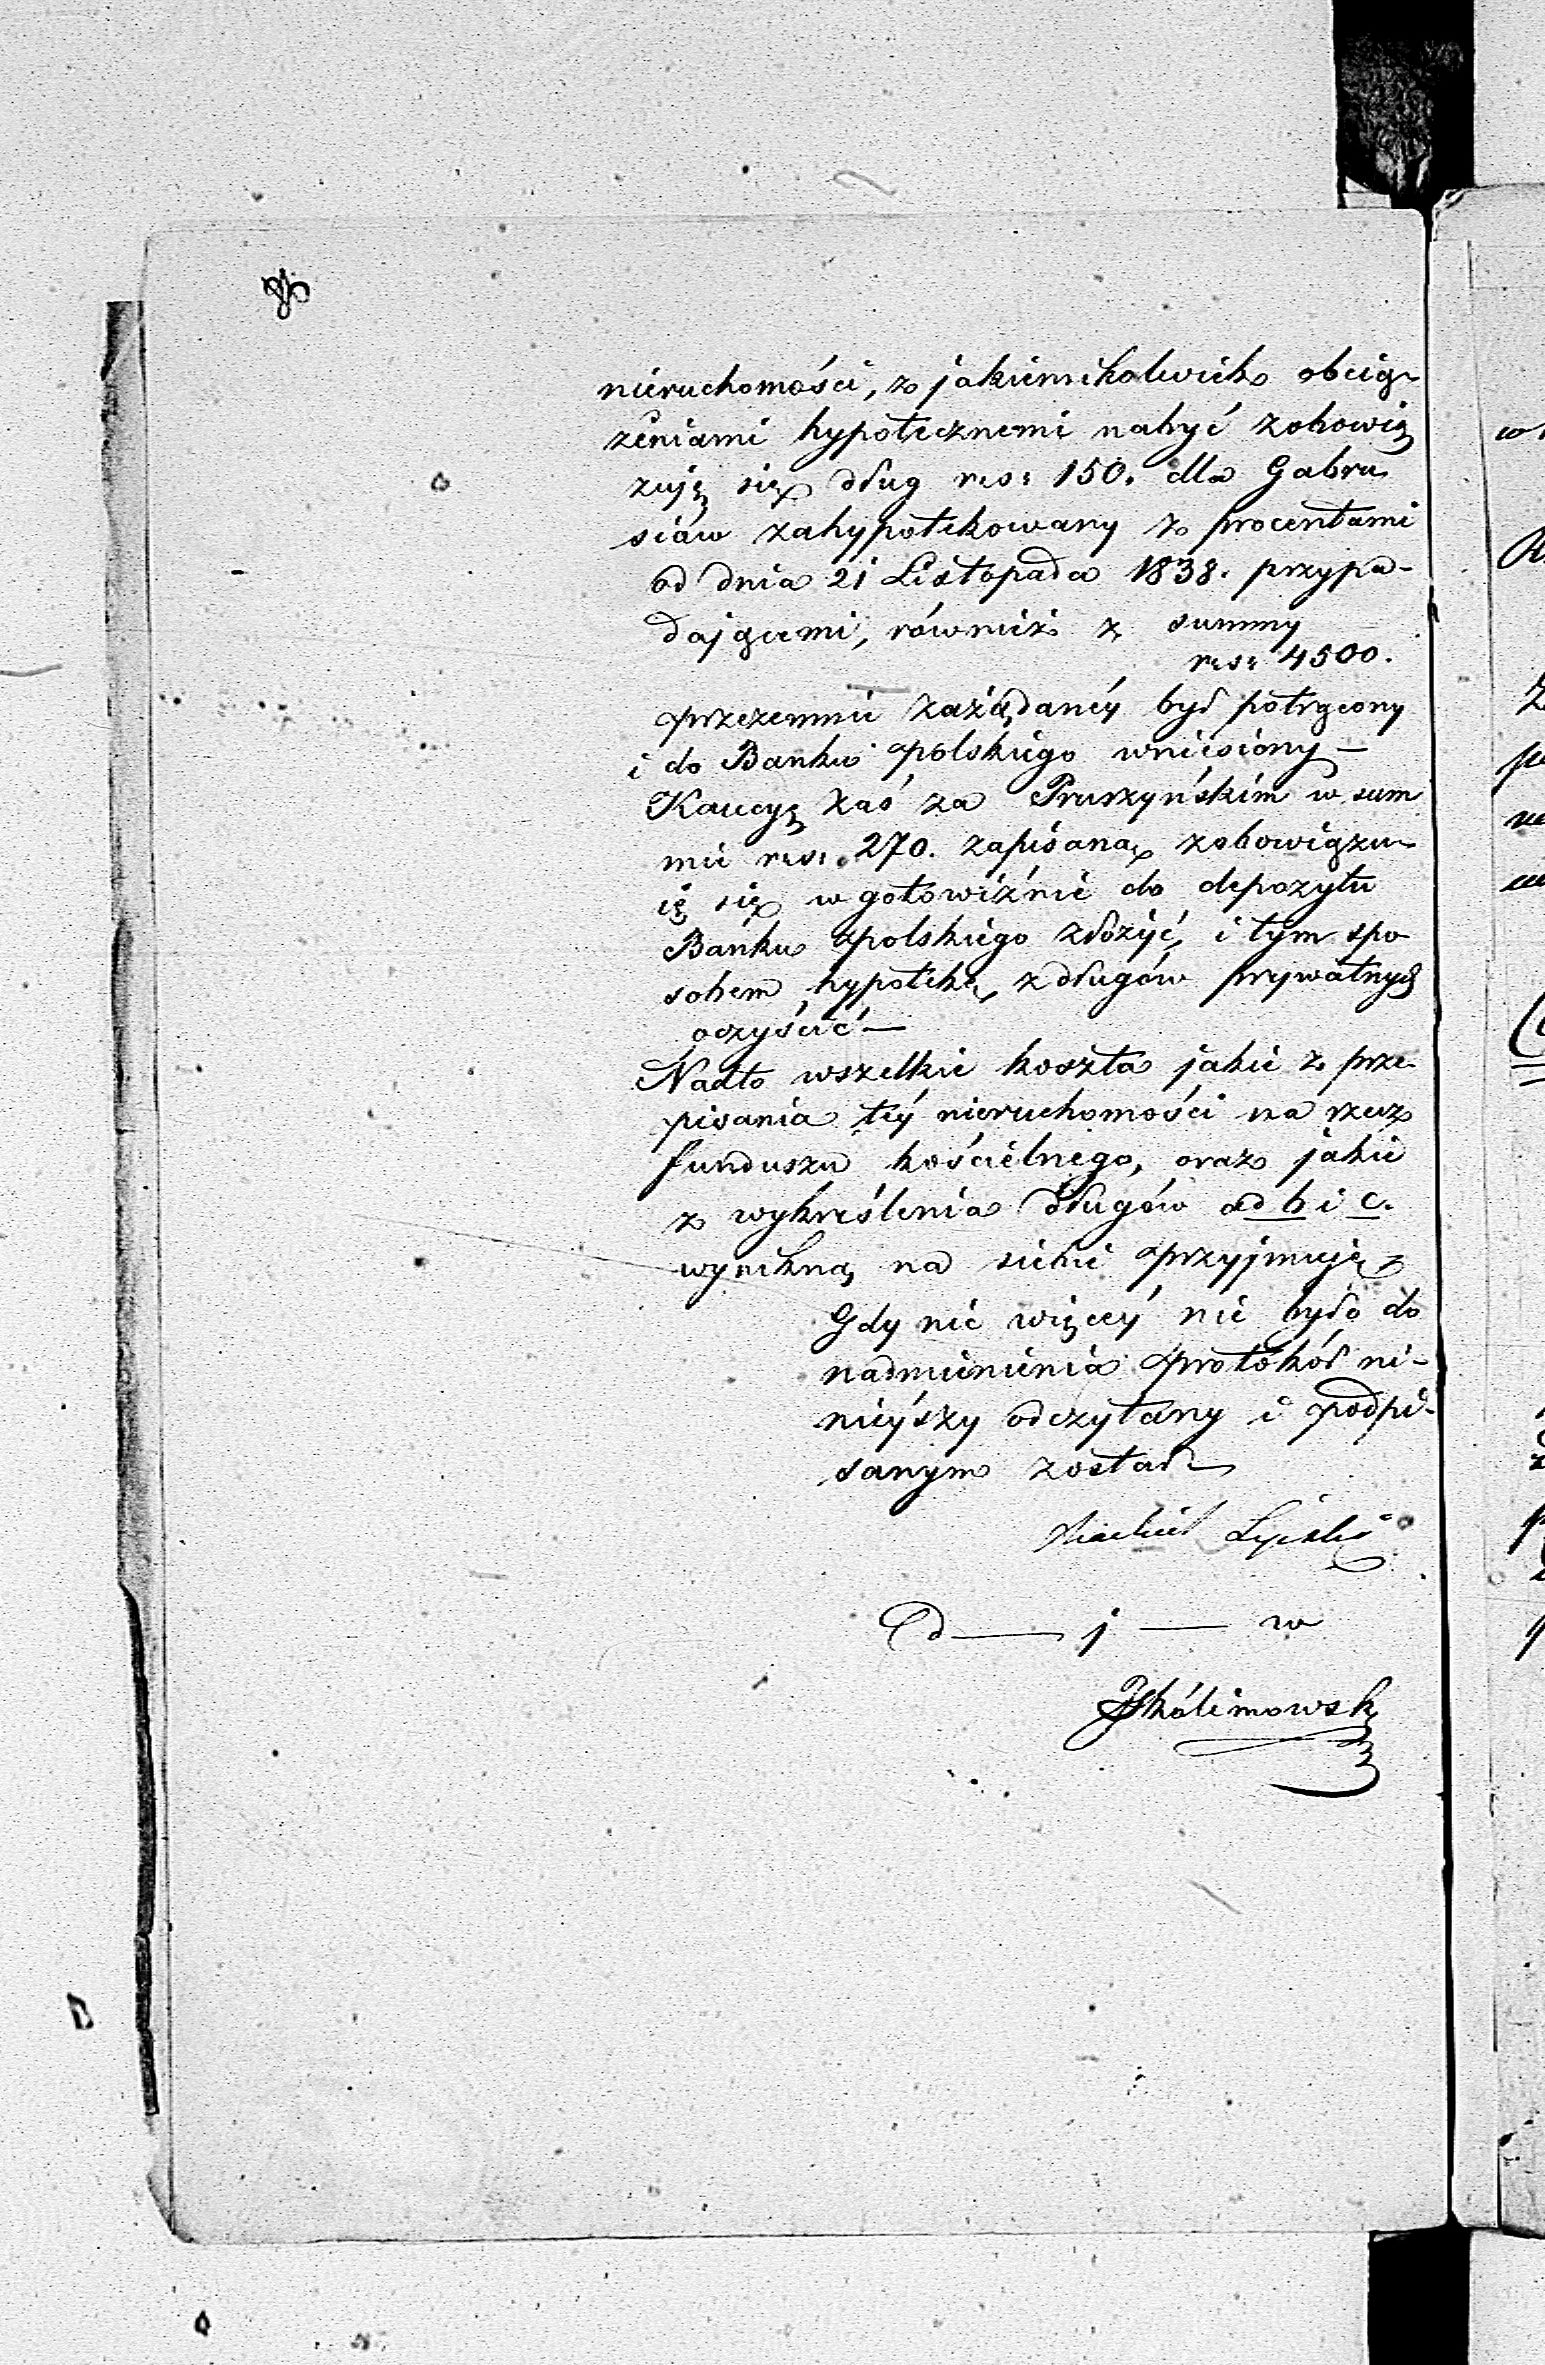 nieruchomości, z jakiemikolwiek obcią-
żeniami hypotecznemi nabyć zobowią
zuję się dług rs: 150. dla Gabry
siów zahypotekowany z procentami
od dnia 21 Listopada 1838. przypa-
dającemi, również z summy
rs: 4500.
przezemnie zażądanéy był potrącony
i do Banku polskiego wniesiony —
Kaucyę zaś za Pruszyńskim w sum
mie rs: 270. zapisaną zobowiązu
ię się w gotowiźnie do depozytu
Banku polskiego złożyć, i tym spo
sobem hypotekę z długów prywatnych
oczyścić —
Nadto wszelkie koszta jakie z prze-
pisania téy nieruchomości na rzecz
funduszu kościelnego, oraz jakie
z wykreślenia długów ad b i c.
wynikną na siebie przyjmuję
Gdy nic więcéy nie było do
nadmienienia protokół ni-
nieyszy odczytany i podpi-
sanym został
d — j — w
Skolimowski